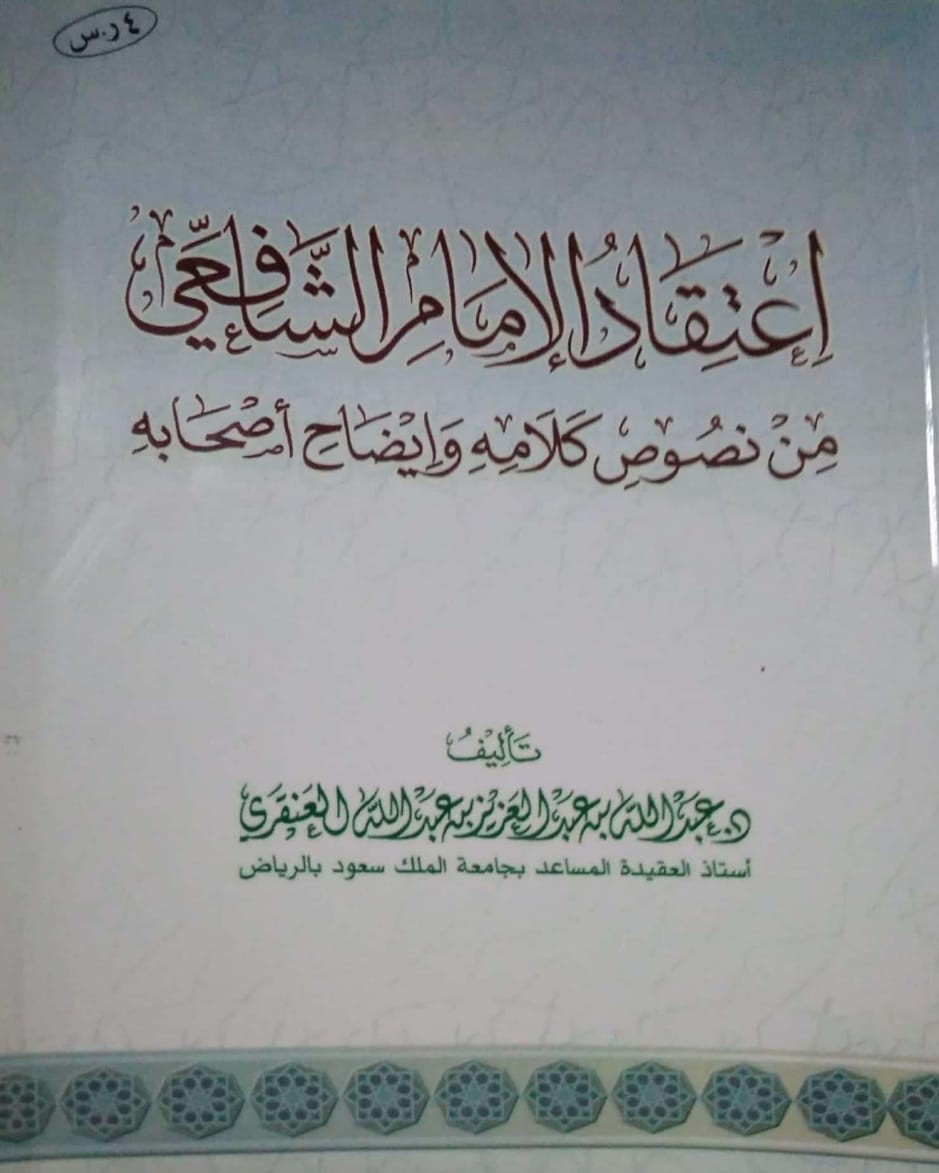 ٤ ر.س
اِعْتِقَادُ الإِمَامِ الشَّافِعِيِّ
مِنْ نصُوصِ كَلَامِهِ وَإِيْضَاحِ أَصْحَابِهِ
تَأْلِيفُ
د. عَبْد الله بن عَبْد العَزِيز بن عَبْد الله العَنقَرِي
أستاذ العقيدة المساعد بجامعة الملك سعود بالرياض